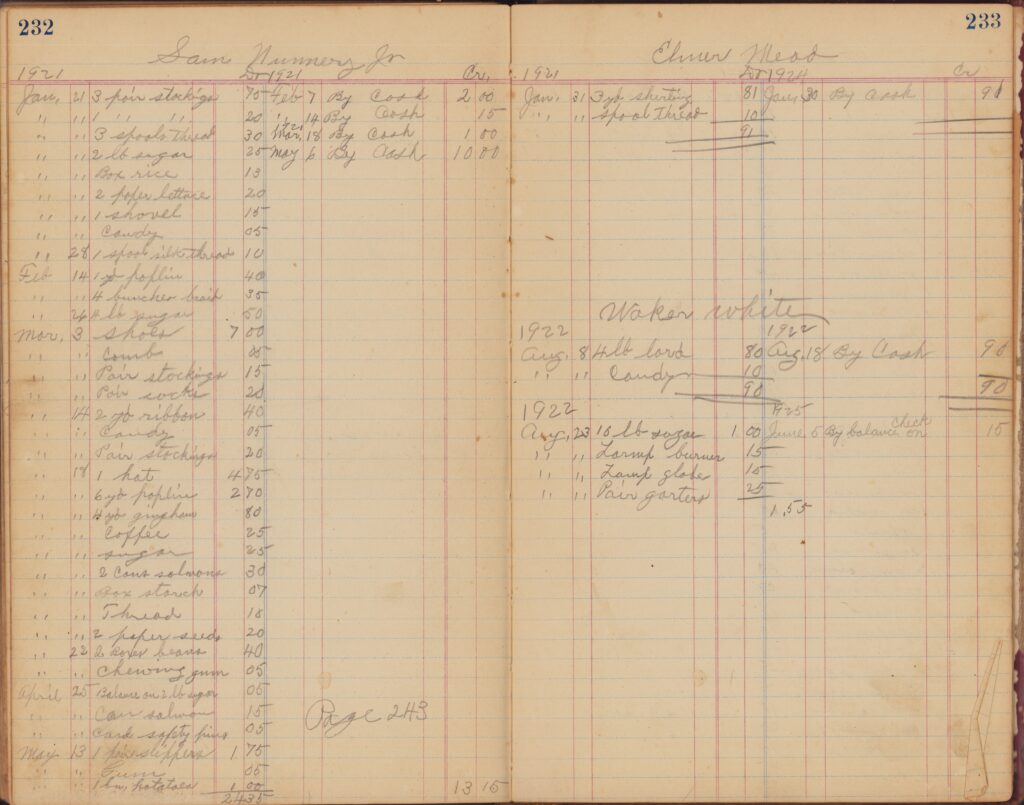 232
Sam Nunnery Jr
1921 Dr 1921 Cr,
Jan, 21 3 pair stockings 70 Feb 7 By Cash 2 00
" " 1 " " 20 " 14 By Cash 15
" " 3 spools thread 30 Mar, 18 By Cash 1 00
" " 2 lb sugar 25 May 6 By Cash 10.00
" " Box rice 13
" " 2 paper lettace 20
" " 1 shovel 15
" " Candy 05
" 28 1 spool silk thread 10
Feb 14 1 yd poplin 40
" " 4 bunches braid 35
" 26 4 lb sugar 50
Mar, 3 shoes 7 00
" " Comb 05
" " Pair stockings 15
" " Pair socks 20
" 14 2 yd ribbon 40
" " Candy 05
" " Pair stockings 20
" 18 1 hat 4 75
" " 6 yd poplin 2 70
" " 4 yd gingham 80
" " Coffee 25
" " sugar 25
" " 2 Cans salmons 30
" " Box starch 07
" " Thread 10
" " 2 paper seeds 20
" 22 2 boxes beans 40
" " Chewing gum 05
April 25 Balance on 2 lb sugar 05
" " Can salmon 15 Page 243
" " Card safety pins 05
May 13 1 pair slippers 1 75
" " Gum 05
" " 1 bu, potatoes 1 00 13 15
24 35
233
Elmer Mead
1921 Dr 1921 Cr
Jan, 31 3 yd shirting 81 Jan, 30 By Cash 91
" " spool thread 10
91
Waker White
1922 1922
Aug, 8 4 lb lard 80 Aug, 18 By Cash 90
" " Candy 10
90 90
1922 1925
Aug, 23 10 lb sugar 1 00 June 5 By balance on check 15
" " Lamp burner 15
" " Lamp globe 15
" " Pair garters 25
1.55